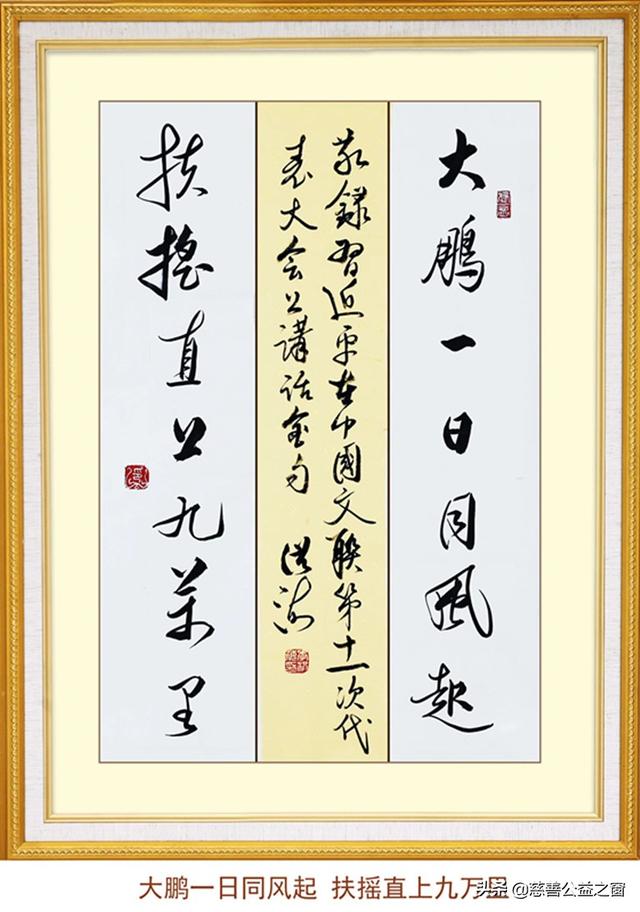 大鵬一日同風起
敬錄習近平在中國文聯第十一次代
表大会上講話金句
扶搖直上九萬里
大鹏一日同风起 扶摇直上九万里
头条 @慈善公益之窗